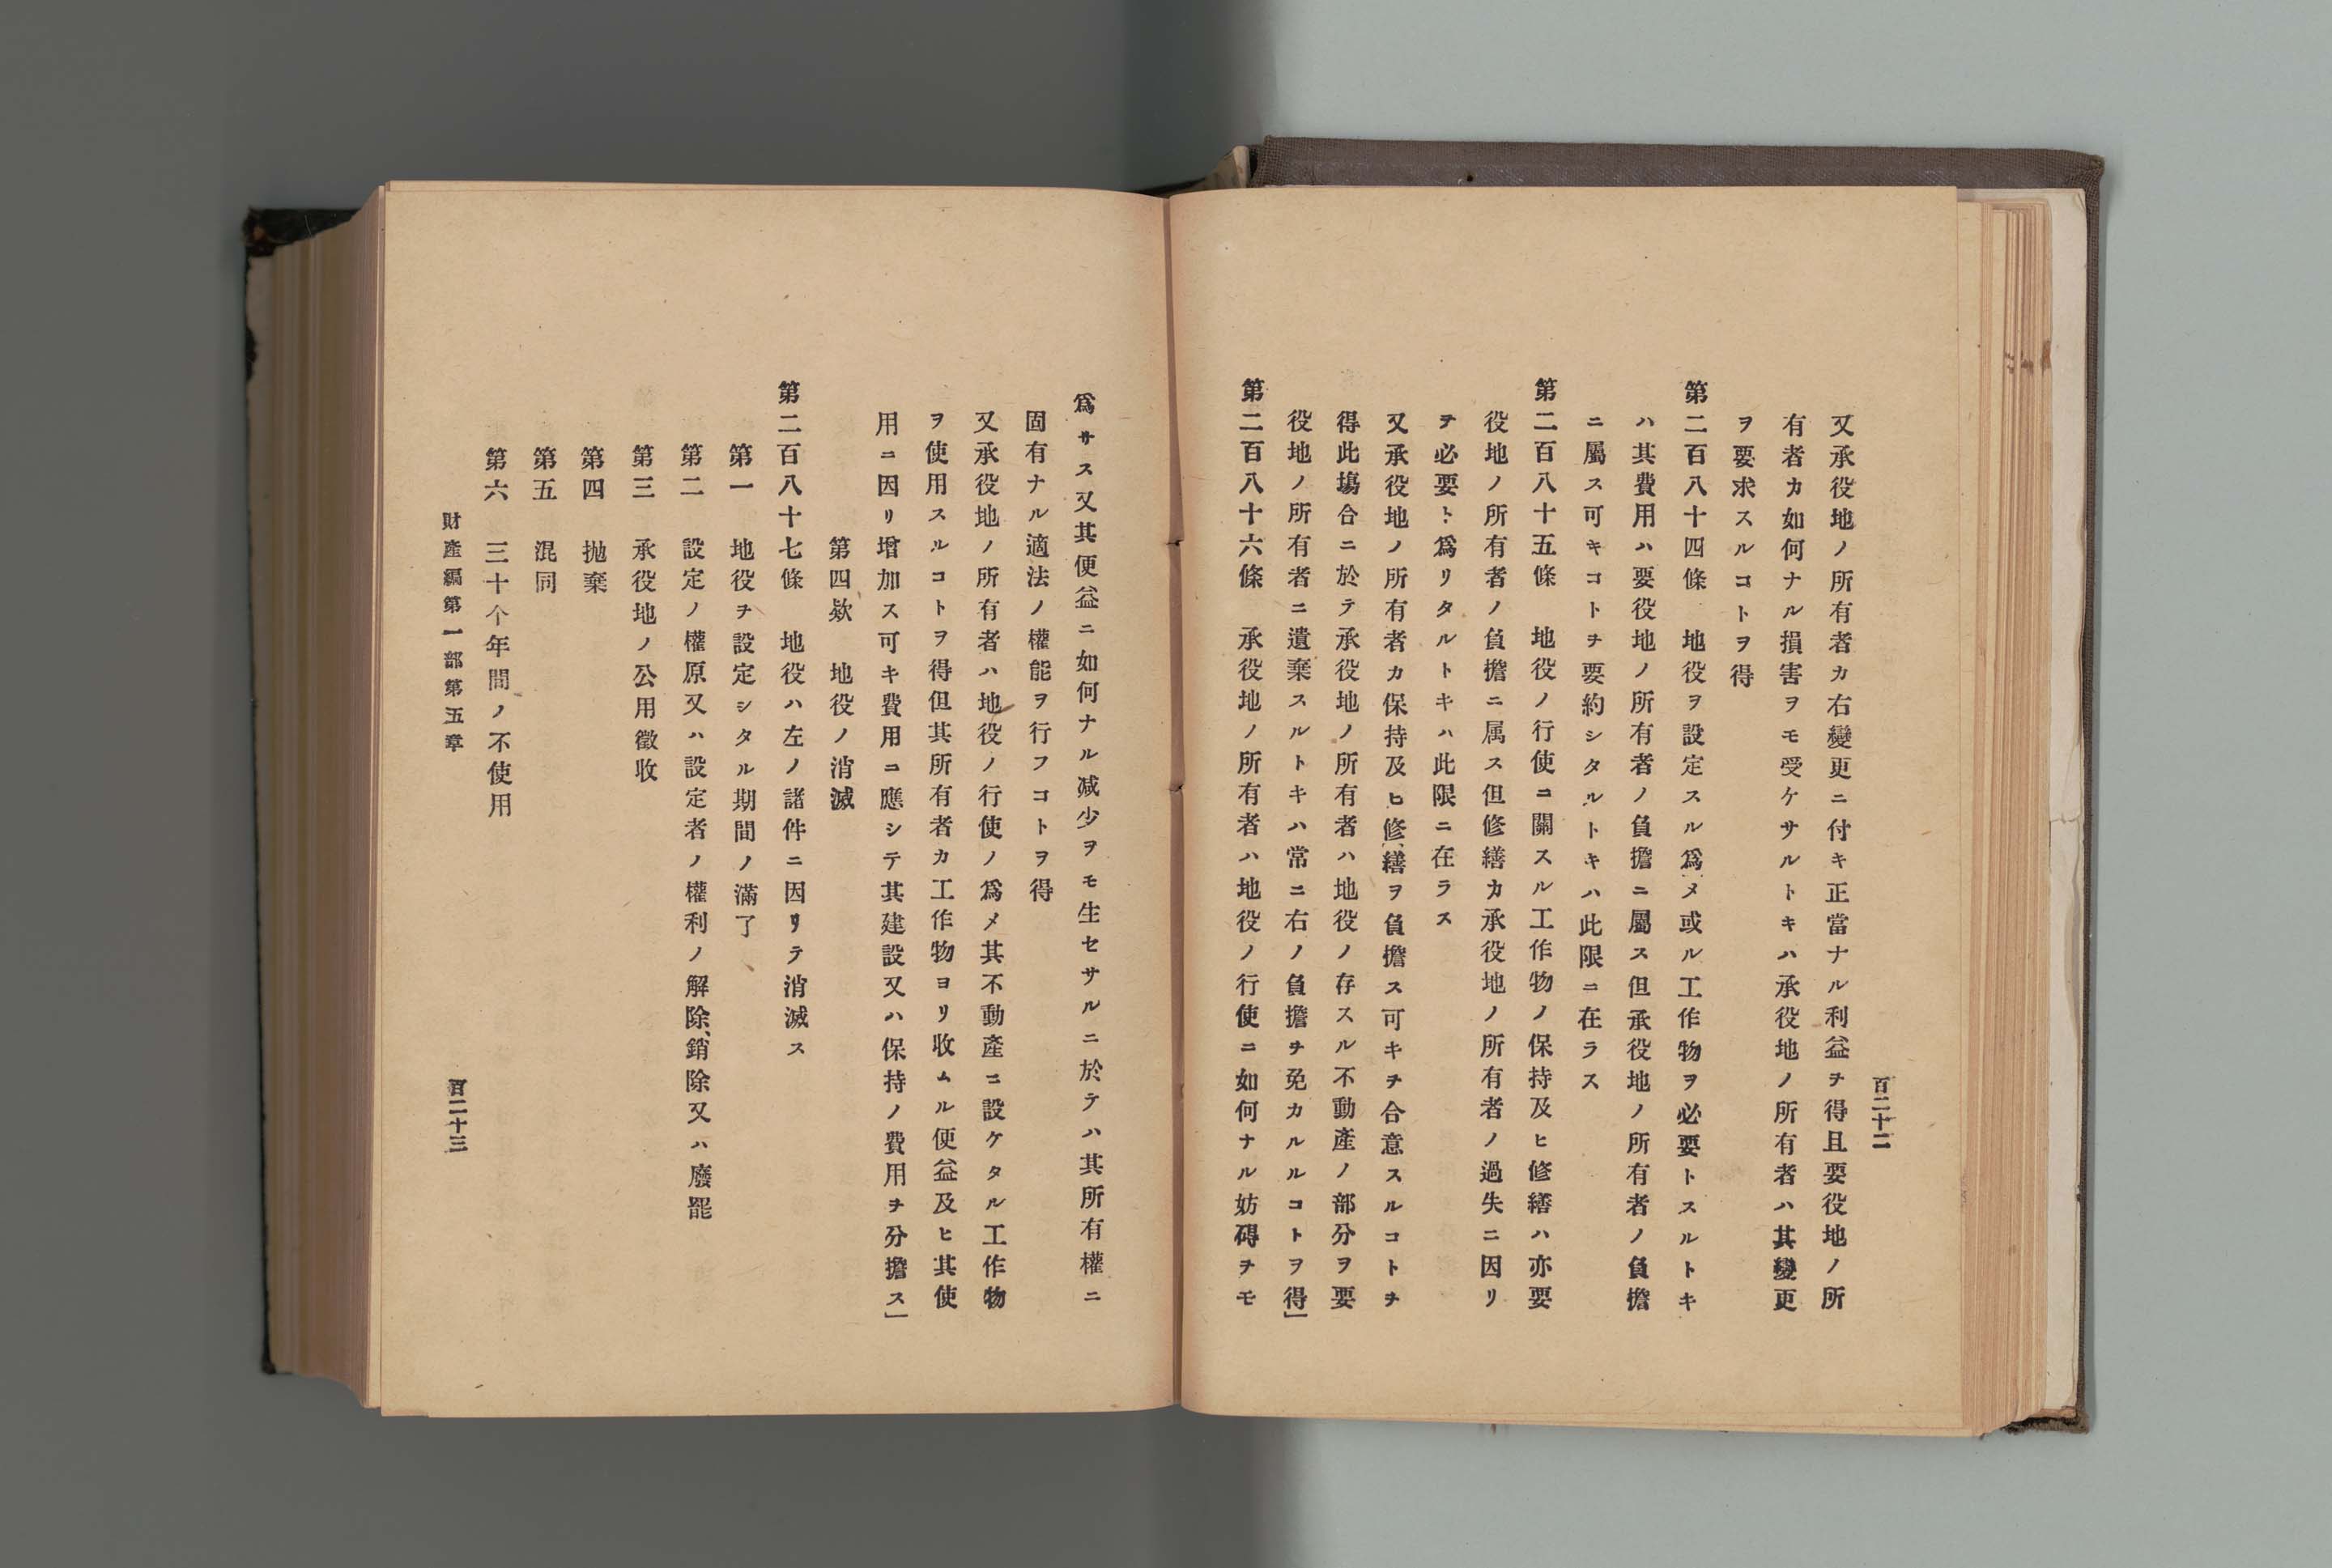 百二十二
又承役地ノ所有者カ右變更ニ付キ正當ナル利益ヲ得且要役地ノ所
有者カ如何ナル損害ヲモ受ケサルトキハ承役地ノ所有者ハ其變更
ヲ要求スルコトヲ得
第二百八十四條　地役ヲ設定スル爲メ或ル工作物ヲ必要トスルトキ
ハ其費用ハ要役地ノ所有者ノ負擔ニ屬ス但承役地ノ所有者ノ負擔
ニ屬ス可キコトヲ要約シタルトキハ此限ニ在ラス
第二百八十五條　地役ノ行使ニ關スル工作物ノ保持及ヒ修繕ハ亦要
役地ノ所有者ノ負擔ニ属ス但修繕カ承役地ノ所有者ノ過失ニ因リ
テ必要ト爲リタルトキハ此限ニ在ラス
又承役地ノ所有者カ保持及ヒ修繕ヲ負擔ス可キヲ合意スルコトヲ
得此塲合ニ於テ承役地ノ所有者ハ地役ノ存スル不動產ノ部分ヲ要
役地ノ所有者ニ遺棄スルトキハ常ニ右ノ負擔ヲ免カルルコトヲ得」
第二百八十六條　承役地ノ所有者ハ地役ノ行使ニ如何ナル妨碍ヲモ
爲サス又其便益ニ如何ナル減少ヲモ生セサルニ於テハ其所有權ニ
固有ナル適法ノ權能ヲ行フコトヲ得
又承役地ノ所有者ハ地役ノ行使ノ爲メ其不動產ニ設ケタル工作物
ヲ使用スルコトヲ得但其所有者カ工作物ヨリ收ムル便益及ヒ其使
用ニ因リ增加ス可キ費用ニ應シテ其建設又ハ保持ノ費用ヲ分擔ス」
第四欵　地役ノ消滅
第二百八十七條　地役ハ左ノ諸件ニ因リテ消滅ス
第一　地役ヲ設定シタル期間ノ滿了
第二　設定ノ權原又ハ設定者ノ權利ノ解除、銷除又ハ廢罷
第三　承役地ノ公用徵收
第四　抛棄
第五　混同
第六　三十个年間ノ不使用
財產編第一部第五章　百二十三